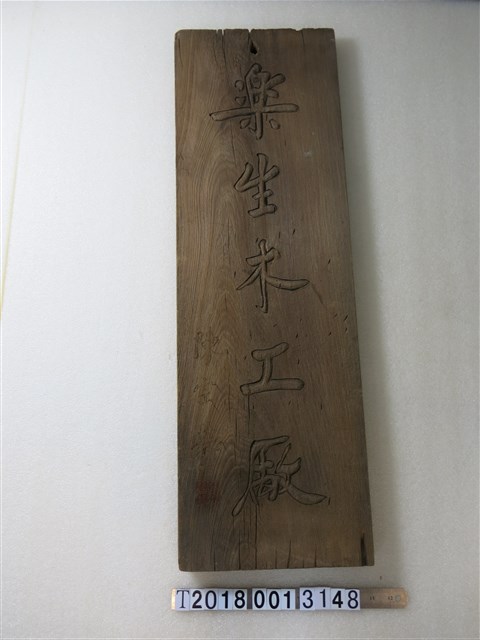 楽生木工廠
T2018 001 3148